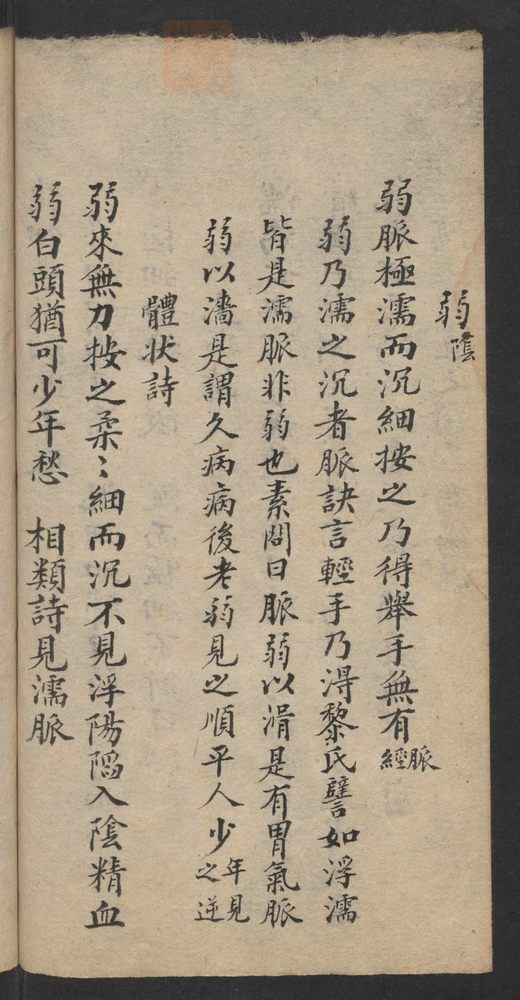 弱陰
弱脈極濡而沉細按之乃得舉手無有脈經
弱乃濡之沉者脈訣言輕手乃淂黎氏譬如浮漚
皆是濡脈非弱也素問曰脈弱以滑是有胃氣脈
弱以濇是謂久病病後老弱見之順平人少年見之逆
體狀詩
弱來無力按之柔〻細而沉不見浮陽陷入陰精血
弱白頭猶可少年愁 相類詩見濡脈